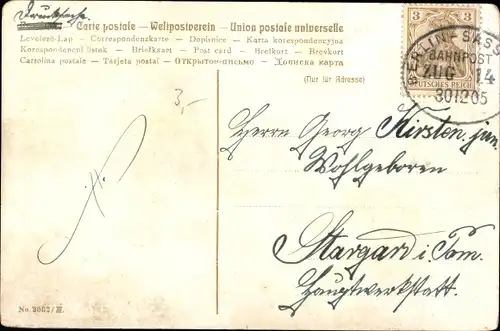 Drucksache.
Carte postale — Weltpostverein — Union postale universelle
Levelező-Lap — Correspondenzkarte — Dopisnice — Karta korespondencyjna
Korespondenční lístek — Briefkaart — Post card — Brefkort — Brevkort
Cartolina postale — Tarjeta postal — Открытое письмо — Дописна карта
(Nur für Adresse)
3 3
DEUTSCHES REICH
BERLIN-SASS
BAHNPOST
ZUG 14
301205
3,-
Herrn Georg Kirsten jun.
Wohlgeboren
Stargard i. Pom.
Hauptwerkstatt.